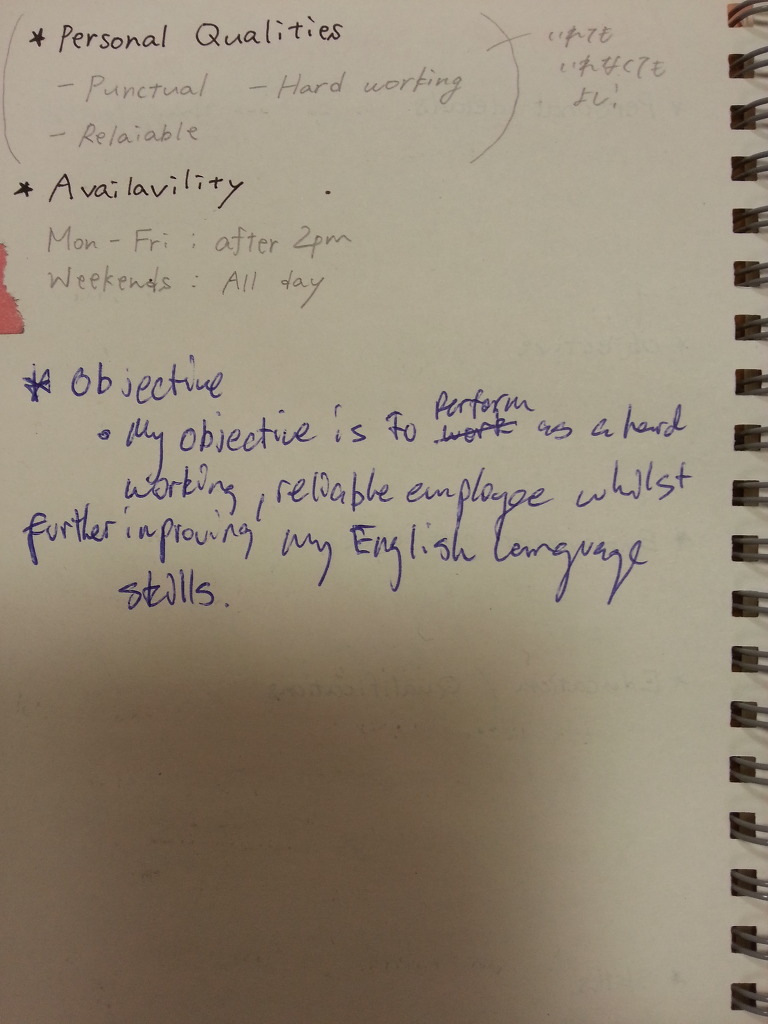 * Personal Qualities
- Punctual - Hard working
- Relaiable
いれても
いれなくても
よし!
* Availavility
Mon - Fri : after 2pm
Weekends : All day
* Objective
• My objective is to work perform as a hard
working, reliable employee whilst
further improving my English language
skills.